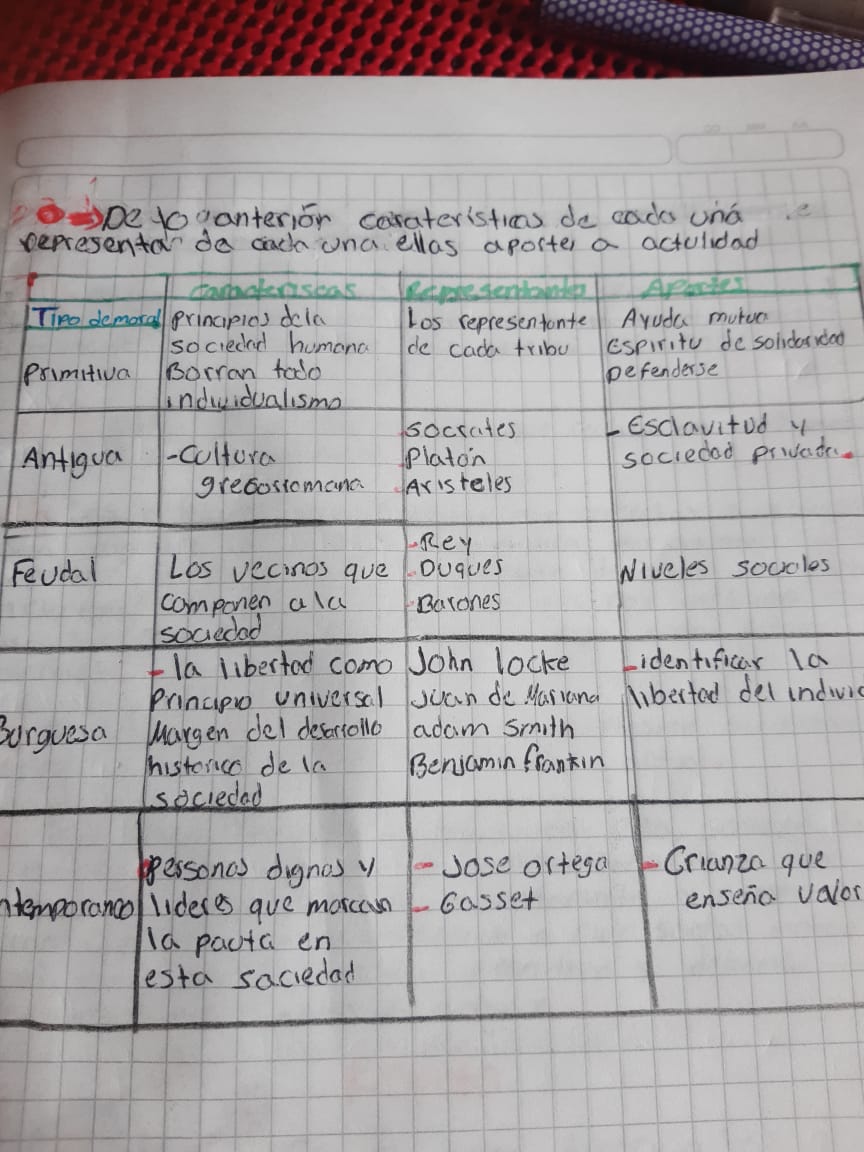 De lo anterión carateristicas de cada una
representan de cada una ellas aportes a actulidad
Caracteriscas Representante Aportes
Tipo de moral
Primitiva
principios dela
sociedad humana
Borran todo
individualismo
Los representante
de cada tribu
Ayuda mutua
Espiritu de solidaridad
Defenderse
Antigua
-Cultura
grecorromana
Socrates
Platón
Aristeles
-Esclavitud y
sociedad privada.
Feudal
Los vecinos que
componen a la
sociedad
-Rey
-Duques
-Barones
Niveles sociales
Burguesa
-la libertad como
Principio universal
Margen del desarrollo
historico de la
sociedad
John locke
Juan de Mariana
adam Smith
Benjamin frankin
-identificar la
libertad del indivic
ntemporaneo
Personas dignas y
lideres que marcan
la pauta en
esta sociedad
- Jose ortega
- Gasset
- Crianza que
enseña valor